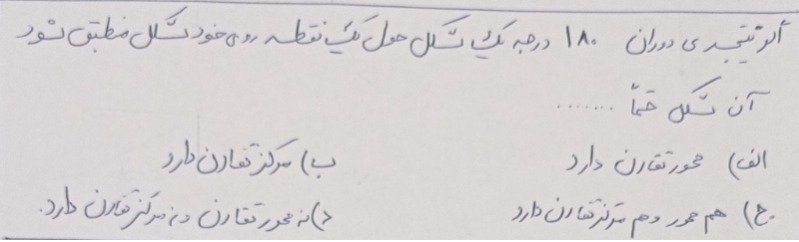 اگر نتیجه ی دوران ۱۸۰ درجه یک شکل حول یک نقطه روی خود شکل منطبق شود
آن شکل حتماً .......
الف) محور تقارن دارد ب) مرکز تقارن دارد
ج) هم محور و هم مرکز تقارن دارد د) نه محور تقارن و نه مرکز تقارن دارد.